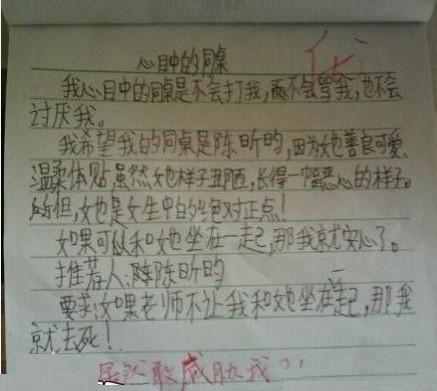 心目中的同桌
优
我心目中的同桌是不会打我,不会骂我,也不会
讨厌我。
我希望我的同桌是陈昕昀,因为她善良可爱、
温柔体贴,虽然她样子丑陋,长得一幅恶心的样子。
但,她是女生中的绝对正点!
如果可以和她坐在一起,那我就安心了。
推荐人:陈昕昀
要求:如果老师不让我和她坐在一起,那我
就去死!
居然敢威胁我?!